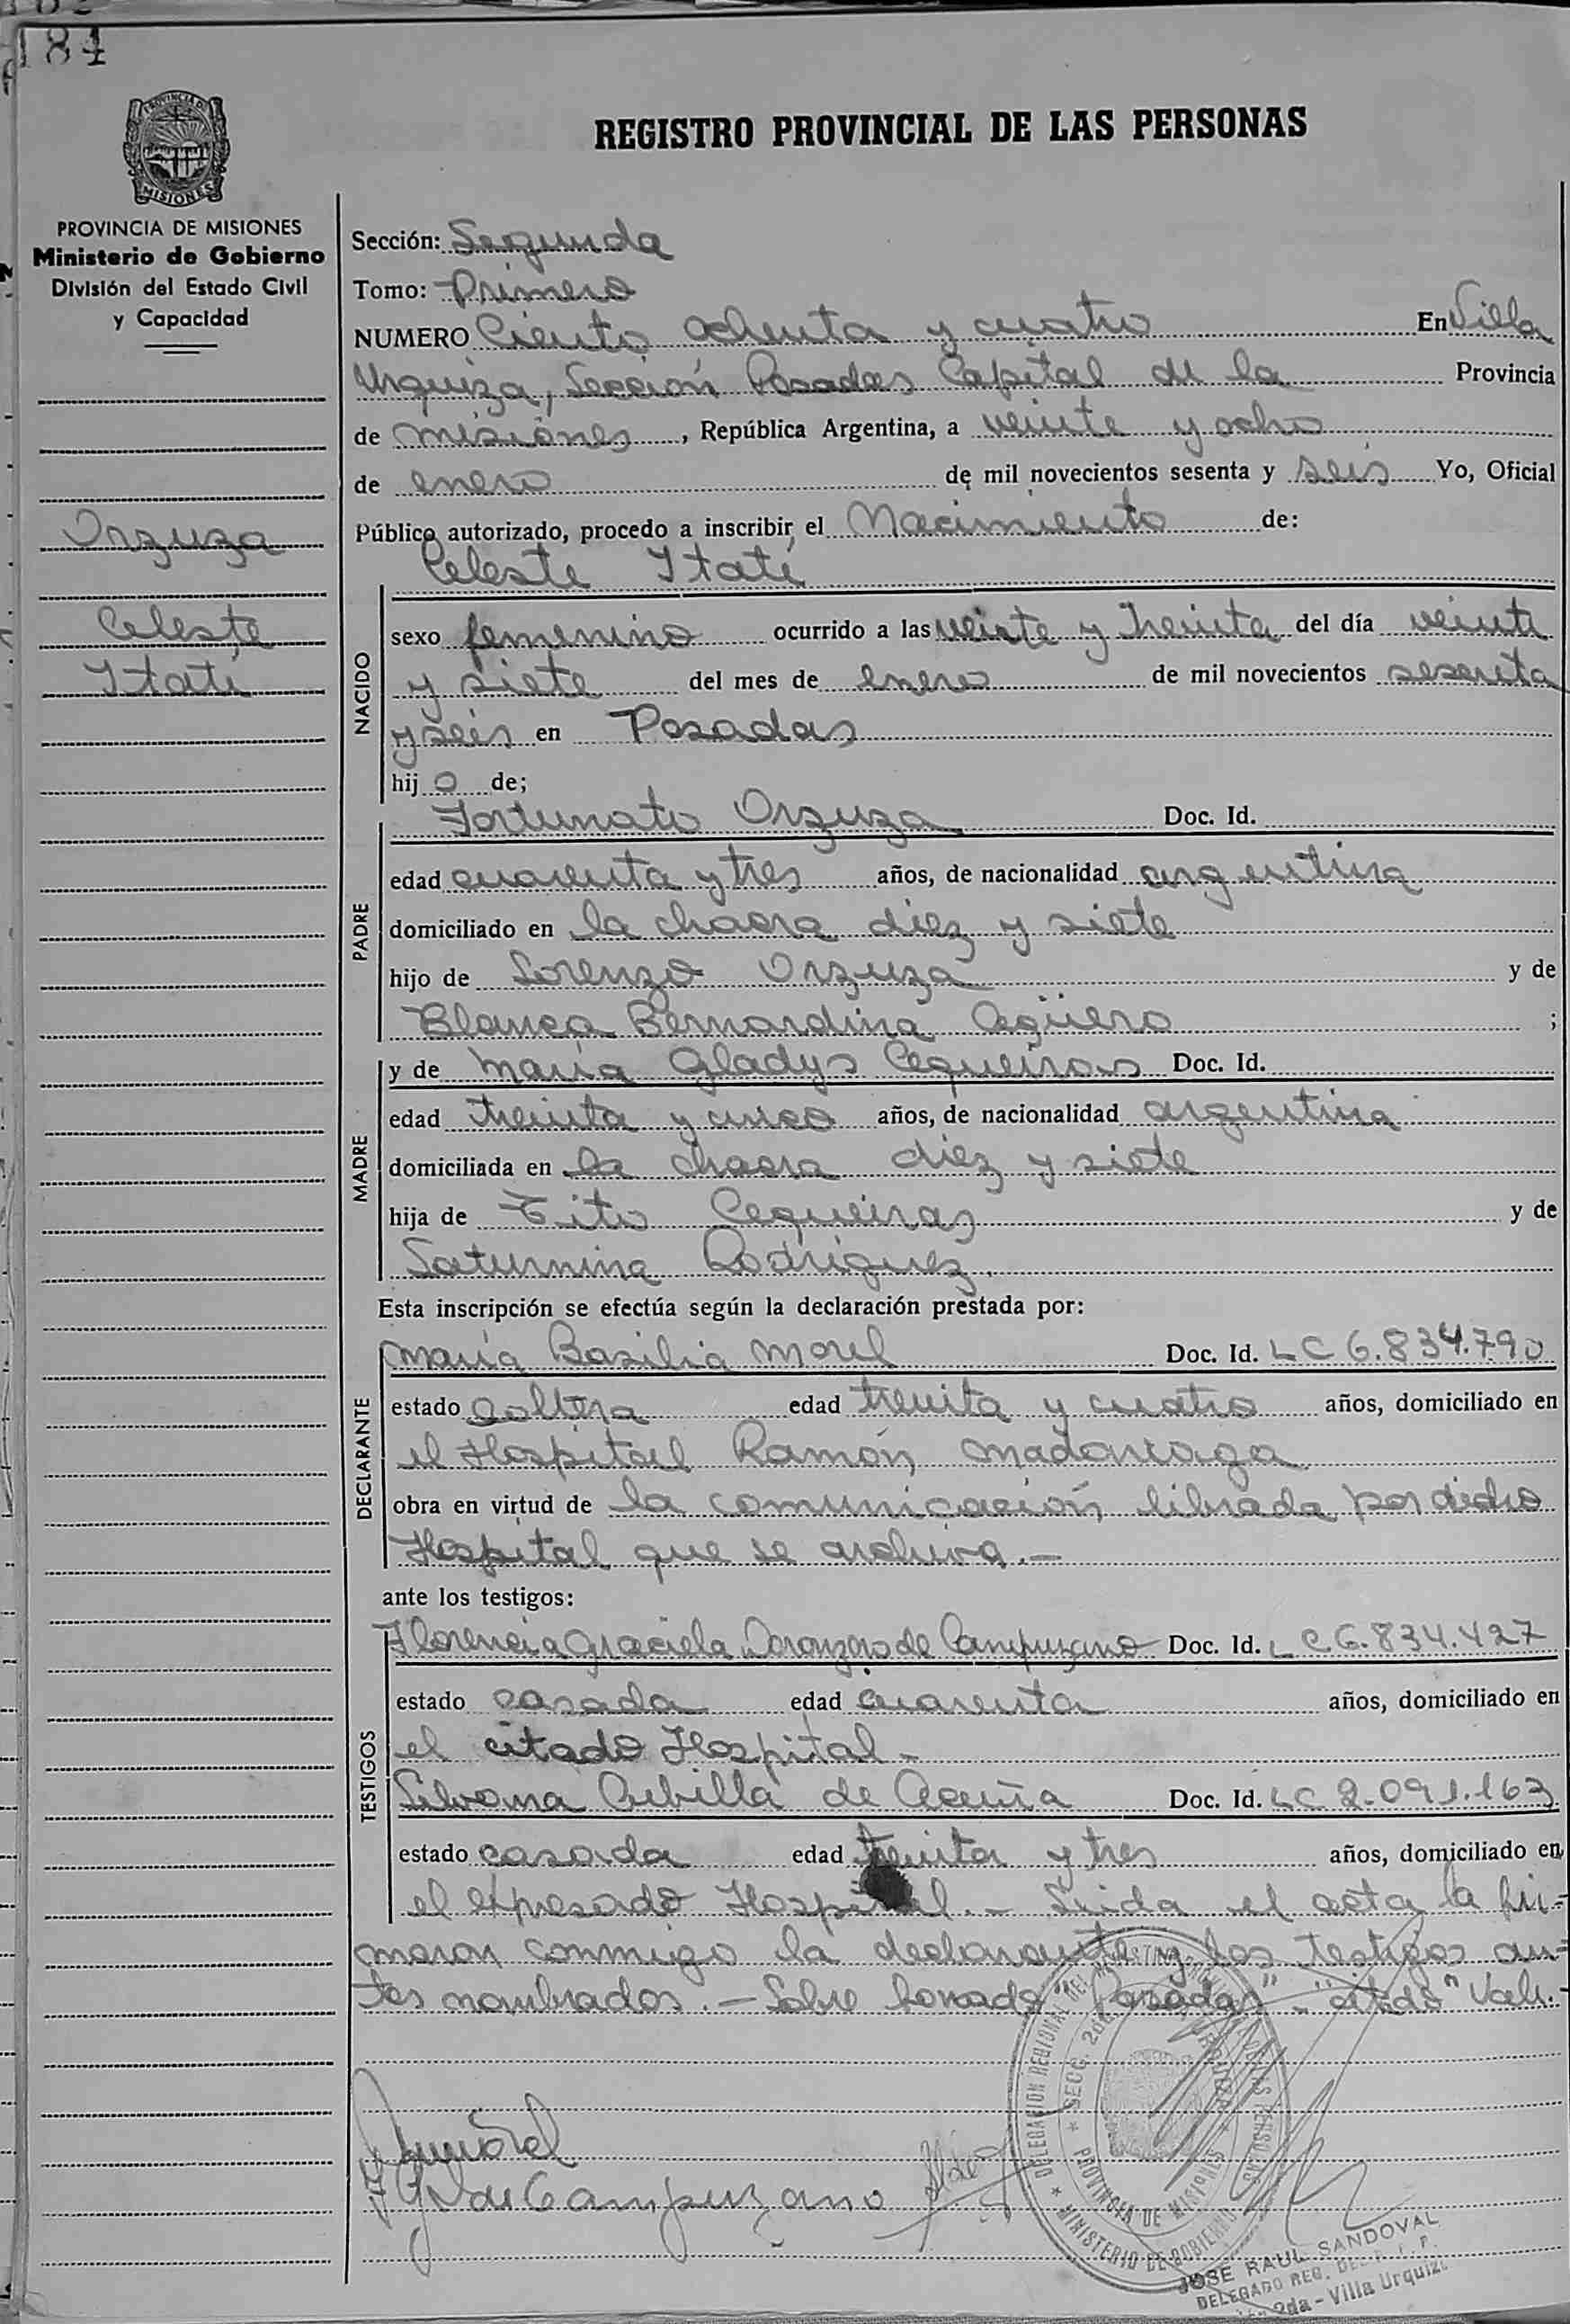 184
REGISTRO PROVINCIAL DE LAS PERSONAS
PROVINCIA DE
MISIONES
PROVINCIA DE MISIONES
Ministerio de Gobierno
División del Estado Civil
y Capacidad
Orzuza
Celeste
Itatí
Sección: Segunda
Tomo: Primero
NUMERO Ciento ochenta y cuatro En Villa
Urquiza, Sección Posadas Capital de la Provincia
de misiones, República Argentina, a veinte y ocho
de enero de mil novecientos sesenta y seis Yo, Oficial
Público autorizado, procedo a inscribir el Nacimiento de:
Celeste Itatí
NACIDO
sexo femenino ocurrido a las veinte y treinta del día veinte
y siete del mes de enero de mil novecientos sesenta
y seis en Posadas
hij o de;
Fortunato Orzuza Doc. Id.
PADRE
edad cuarenta y tres años, de nacionalidad argentina
domiciliado en la chacra diez y siete
hijo de Lorenzo Orzuza y de
Blanca Bernardina Agüero ;
y de María Gladys Cequeiras Doc. Id.
MADRE
edad treinta y cinco años, de nacionalidad argentina
domiciliada en la chacra diez y siete
hija de Tito Cequeiras y de
Saturnina Rodríguez.
Esta inscripción se efectúa según la declaración prestada por:
María Basilia Morel Doc. Id. LC 6.834.790
DECLARANTE
estado soltera edad treinta y cuatro años, domiciliado en
el Hospital Ramón Madariaga
obra en virtud de la comunicación librada por dicho
Hospital que se archiva.—
ante los testigos:
Florencia Graciela de Campuzano Doc. Id. LC 6.834.427
TESTIGOS
estado casada edad cuarenta años, domiciliado en
el citado Hospital.-
Silvana Cubilla de Acuña Doc. Id. LC 2.091.163
estado casada edad treinta y tres años, domiciliado en
el expresado Hospital.- Leida el acta la fir=
maron conmigo la declarante y los testigos an=
tes nombrados.— Sobre borrado "Posadas" - "citado" Vale.-
DELEGACION REGIONAL DEL REGISTRO PROVINCIAL DE LAS PERSONAS
SECC. 2da. URQUIZA
PROVINCIA DE MISIONES
MINISTERIO DE GOBIERNO
de Campuzano
JOSE RAUL SANDOVAL
DELEGADO REG. DEL R. P. P.
2da - Villa Urquiza